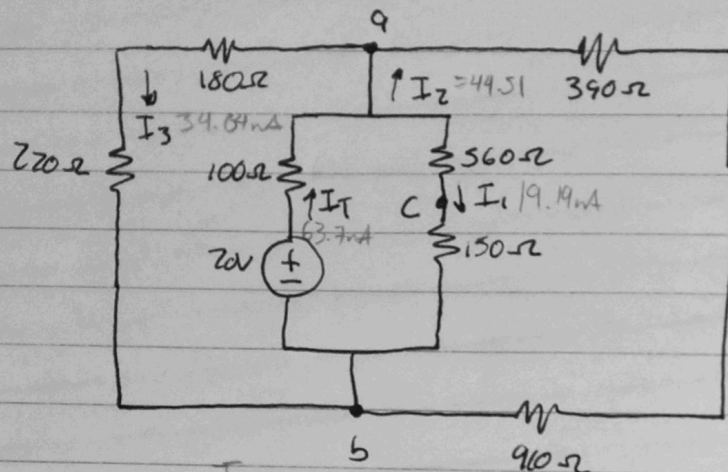 a
180Ω
I₂ =44.51
390Ω
I₃ 34.64mA
220Ω
100Ω
560Ω
I_T
63.7mA
C
I₁ 19.19mA
20V
+
-
150Ω
b
910Ω